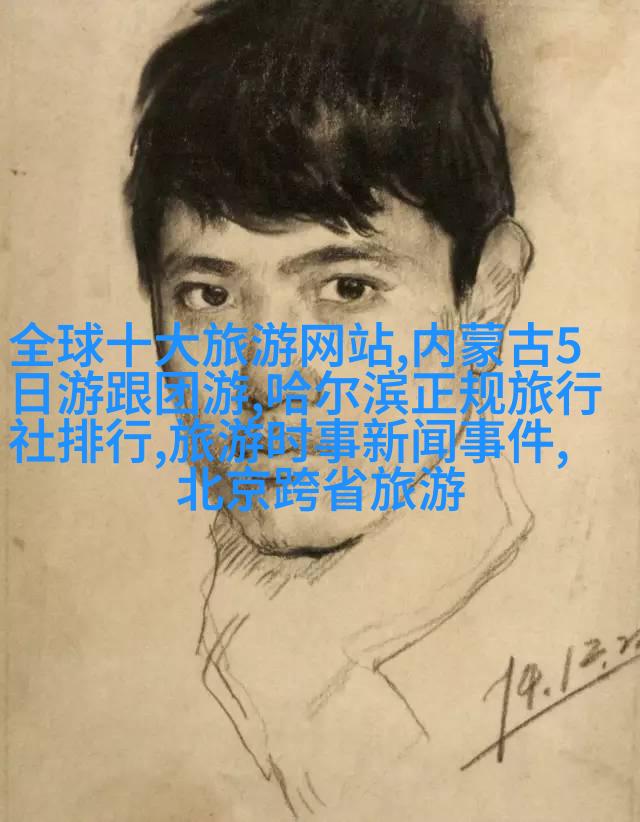 全球十大旅游网站,内蒙古5
日游跟团游,哈尔滨正规旅行
社排行,旅游时事新闻事件,
北京跨省旅游